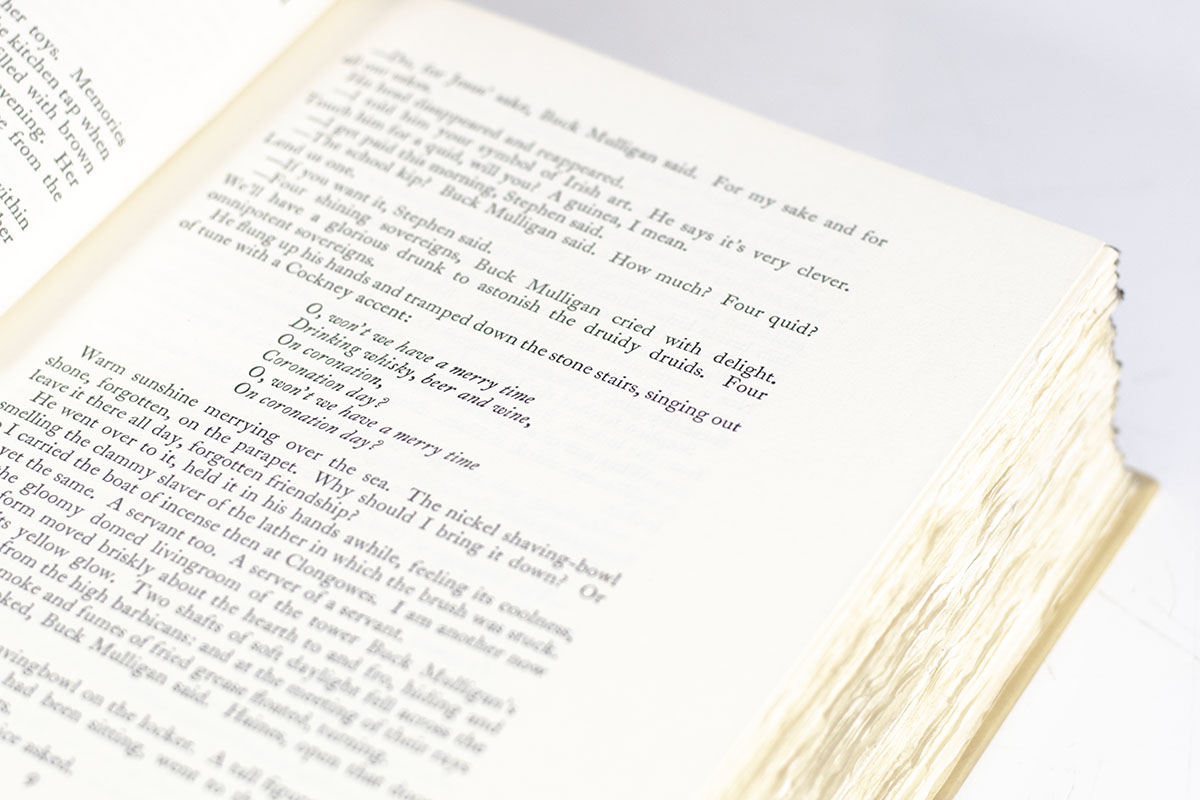 her toys. Memories
kitchen tap when
filled with brown
evening. Her
from the
within
her
—Do, for Jesus' sake, Buck Mulligan said. For my sake and for
all our sakes.
His head disappeared and reappeared.
—I told him your symbol of Irish art. He says it's very clever.
Touch him for a quid, will you? A guinea, I mean.
—I get paid this morning, Stephen said.
—The school kip? Buck Mulligan said. How much? Four quid?
Lend us one.
—If you want it, Stephen said.
—Four shining sovereigns, Buck Mulligan cried with delight.
We'll have a glorious drunk to astonish the druidy druids. Four
omnipotent sovereigns.
He flung up his hands and tramped down the stone stairs, singing out
of tune with a Cockney accent:
O, won't we have a merry time
Drinking whisky, beer and wine,
On coronation,
Coronation day?
O, won't we have a merry time
On coronation day?
Warm sunshine merrying over the sea. The nickel shaving-bowl
shone, forgotten, on the parapet. Why should I bring it down? Or
leave it there all day, forgotten friendship?
He went over to it, held it in his hands awhile, feeling its coolness,
smelling the clammy slaver of the lather in which the brush was stuck.
I carried the boat of incense then at Clongowes. I am another now
yet the same. A servant too. A server of a servant.
the gloomy domed livingroom of the tower Buck Mulligan's
form moved briskly about the hearth to and fro, hiding and
its yellow glow. Two shafts of soft daylight fell across the
from the high barbicans: and at the meeting of their rays
smoke and fumes of fried grease floated, turning.
Buck Mulligan said. Haines, open that door
shavingbowl on the locker. A tall figure
had been sitting, went to the
asked.
9